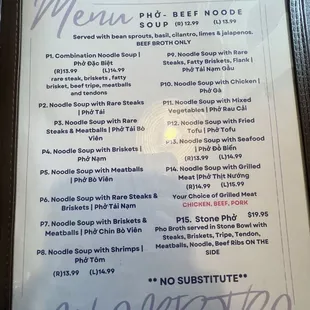 Menu
PHỞ- BEEF NOODE
SOUP (R) 12.99 (L) 13.99
Served with bean sprouts, basil, cilantro, limes & jalapenos.
BEEF BROTH ONLY
P1. Combination Noodle Soup |
Phở Đặc Biệt
(R)13.99 (L)14.99
rare steak, briskets , fatty
brisket, beef tripe, meatballs
and tendons
P2. Noodle Soup with Rare Steaks
| Phở Tái
P3. Noodle Soup with Rare
Steaks & Meatballs | Phở Tái Bò
Viên
P4. Noodle Soup with Briskets |
Phở Nạm
P5. Noodle Soup with Meatballs
| Phở Bò Viên
P6. Noodle Soup with Rare Steaks &
Briskets | Phở Tái Nạm
P7. Noodle Soup with Briskets &
Meatballs | Phở Chín Bò Viên
P8. Noodle Soup with Shrimps |
Phở Tôm
(R) 13.99 (L) 14.99
P9. Noodle Soup with Rare
Steaks, Fatty Briskets, Flank |
Phở Tái Nạm Gầu
P10. Noodle Soup with Chicken |
Phở Gà
P11. Noodle Soup with Mixed
Vegetables | Phở Rau Cải
P12. Noodle Soup with Fried
Tofu | Phở Tofu
P13. Noodle Soup with Seafood
| Phở Đồ Biển
(R)13.99 (L)14.99
P14. Noodle Soup with Grilled
Meat |Phở Thịt Nướng
(R)14.99 (L)15.99
Your Choice of Grilled Meat
CHICKEN, BEEF, PORK
P15. Stone Phở $19.95
Pho Broth served in Stone Bowl with
Steaks, Briskets, Tripe, Tendon,
Meatballs, Noodle, Beef Ribs ON THE
SIDE
** NO SUBSTITUTE**